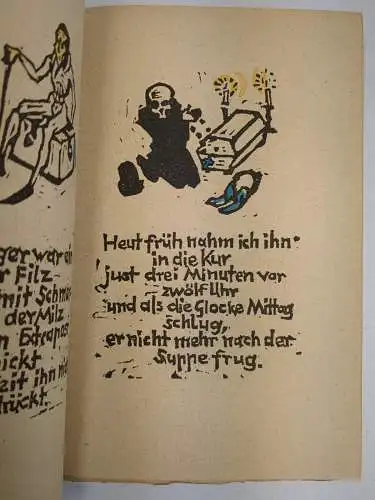 ger war ein
r Filz
mit Schm
der Milz
n Extrapost
ickt
eit ihn
drückt.
Heut früh nahm ich ihn
in die Kur
just drei Minuten var
zwölf Uhr
und als die Glocke Mittag
schlug,
er nicht mehr nach der
Suppe frug.